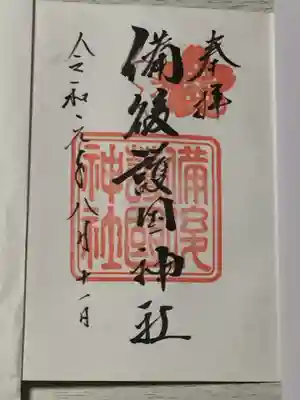 奉拝
備後護国神社
令和元年八月十一日
備後
護国
神社